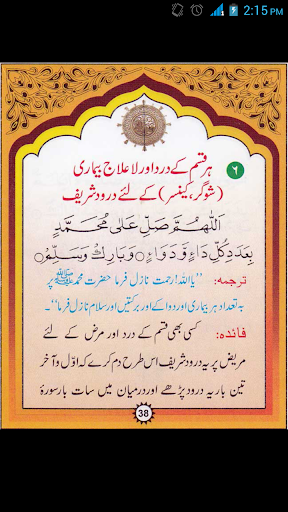 2:15 PM
ہر قسم کے درد اور لاعلاج بیماری
۶
(شوگر، کینسر) کے لئے درود شریف
اَللّٰهُمَّ صَلِّ عَلٰى مُحَمَّدٍ
بِعَدَدِ كُلِّ دَاءٍ وَّدَوَاءٍ وَّبَارِكْ وَسَلِّمْ
ترجمہ: "یا اللہ! رحمت نازل فرما حضرت محمد ﷺ پر
بہ تعداد ہر بیماری اور دوا کے اور برکتیں اور سلام نازل فرما"۔
فائدہ: کسی بھی قسم کے درد اور مرض کے لئے
مریض پر یہ درود شریف اس طرح دم کرے کہ اوّل و آخر
تین بار یہ درود پڑھے اور درمیان میں سات بار سورۂ
38